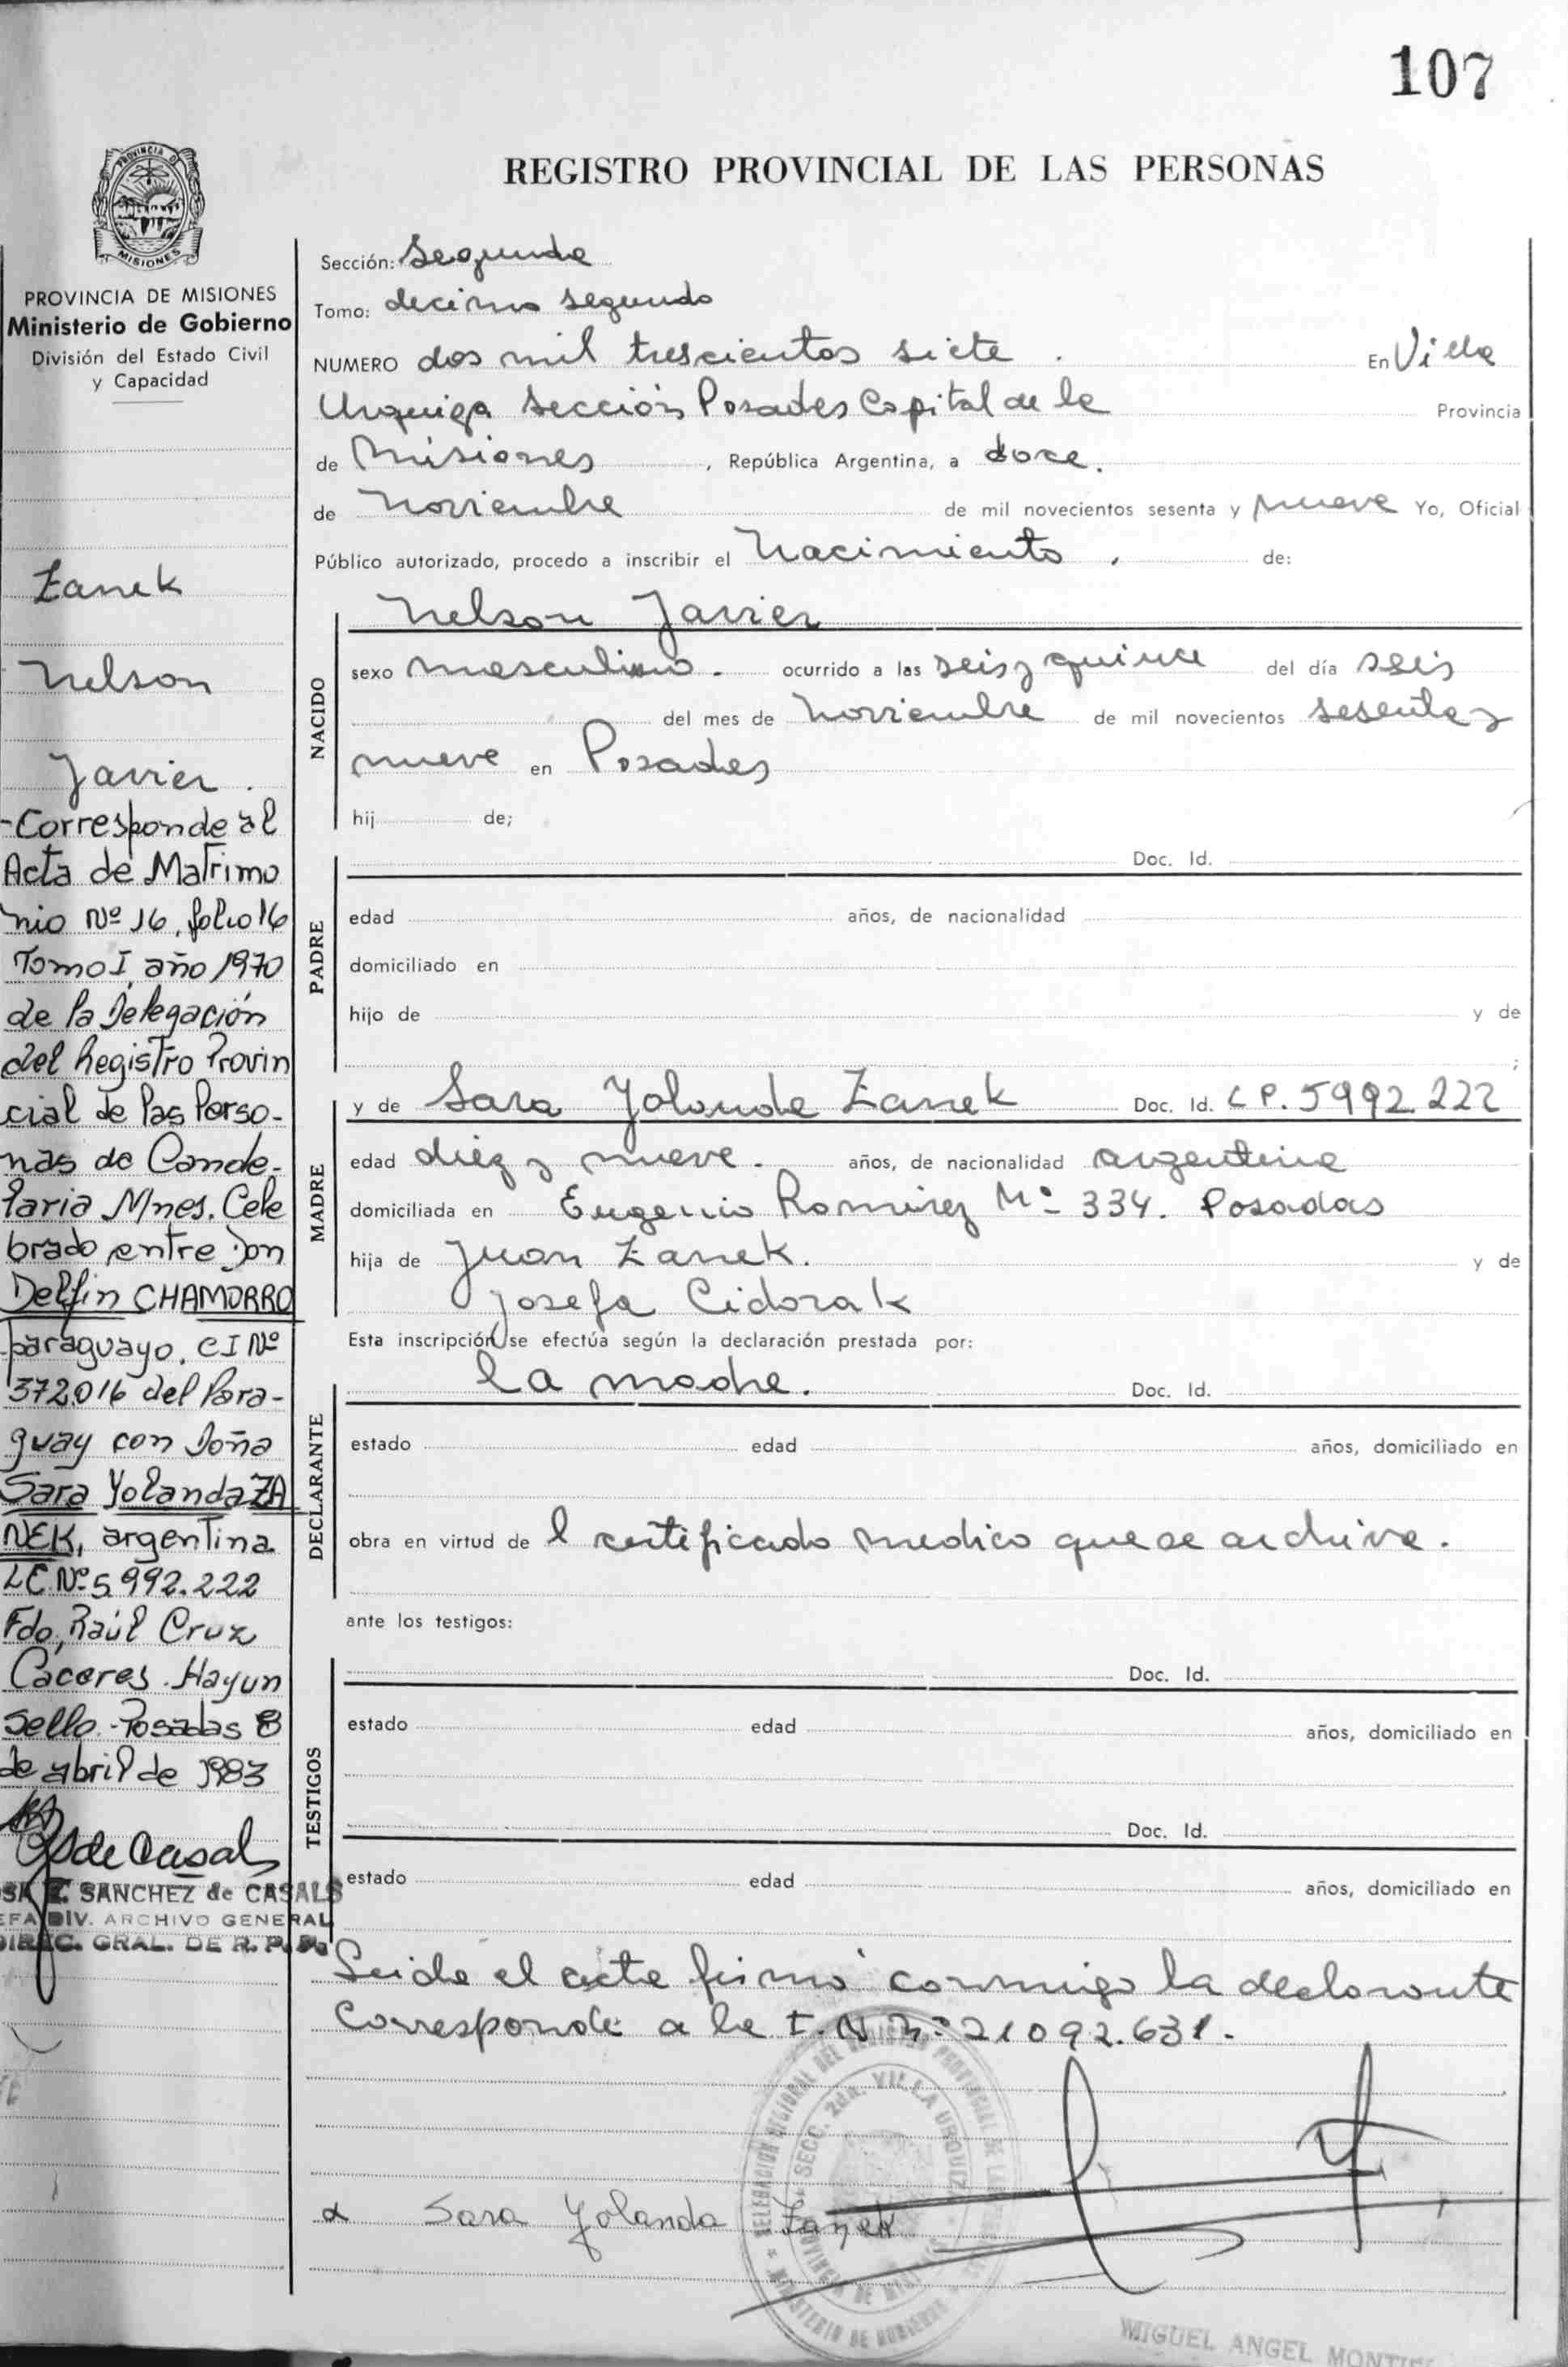 107
REGISTRO PROVINCIAL DE LAS PERSONAS
MISIONES
PROVINCIA DE MISIONES
Ministerio de Gobierno
División del Estado Civil
y Capacidad
Zanek
Nelson
Javier.
-Corresponde al
Acta de Matrimo
nio Nº 16, folio 16
Tomo I, año 1970
de la Delegación
del Registro Provin
cial de las Perso-
nas de Cande-
laria Mnes. Cele
brado entre Don
Delfin CHAMORRO
paraguayo, CI Nº
372.016 del Para-
guay con Doña
Sara Yolanda ZA
NEK, argentina
LC.Nº 5.992.222
Fdo, Raúl Cruz
Caceres. Hay un
sello.-Posadas 8
de abril de 1983
SANCHEZ de CASALS
DIV. ARCHIVO GENERAL
GRAL. DE R. P. P.
Sección: Segunda
Tomo: decimo segundo
NUMERO dos mil trescientos siete. En Villa
Urquiza Sección Posadas Capital de la Provincia
de Misiones, República Argentina, a doce.
de Noviembre de mil novecientos sesenta y nueve Yo, Oficial
Público autorizado, procedo a inscribir el Nacimiento. de:
NACIDO
Nelson Javier
sexo masculino. ocurrido a las seis y quince del día seis
del mes de Noviembre de mil novecientos sesenta y
nueve en Posadas
hij de;
PADRE
Doc. Id.
edad años, de nacionalidad
domiciliado en
hijo de y de
;
MADRE
y de Sara Yolanda Zanek Doc. Id. LC. 5992.222
edad diez y nueve. años, de nacionalidad argentina
domiciliada en Eugenio Ramirez Nº 334. Posadas
hija de Juan Zanek. y de
Josefa Cidorak
Esta inscripción se efectúa según la declaración prestada por:
DECLARANTE
La madre. Doc. Id.
estado edad años, domiciliado en
obra en virtud de l certificado medico que se archiva.
ante los testigos:
TESTIGOS
Doc. Id.
estado edad años, domiciliado en
Doc. Id.
estado edad años, domiciliado en
Leida el acta firmó conmigo la declarante
Corresponde a la I.N nº 21092.631.
Sara Yolanda Zanek
MIGUEL ANGEL